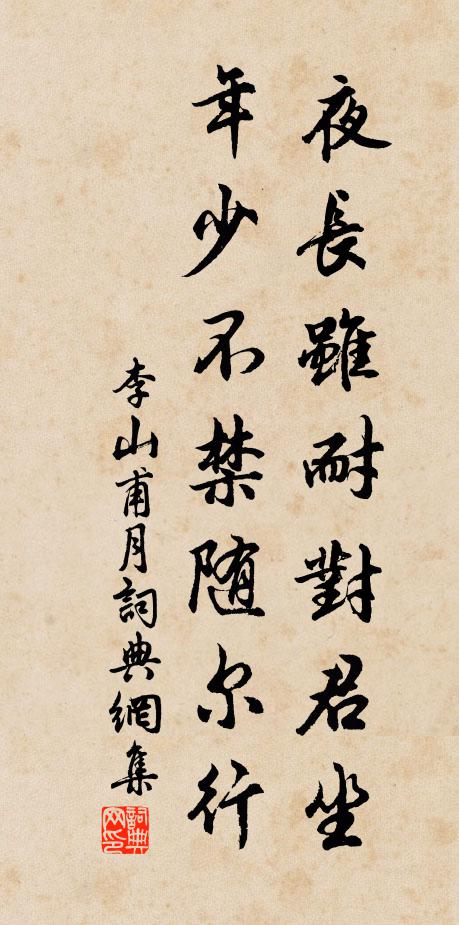 夜長雖耐對君坐
年少不禁随尔行
李山甫月詞典網集
詞典网印